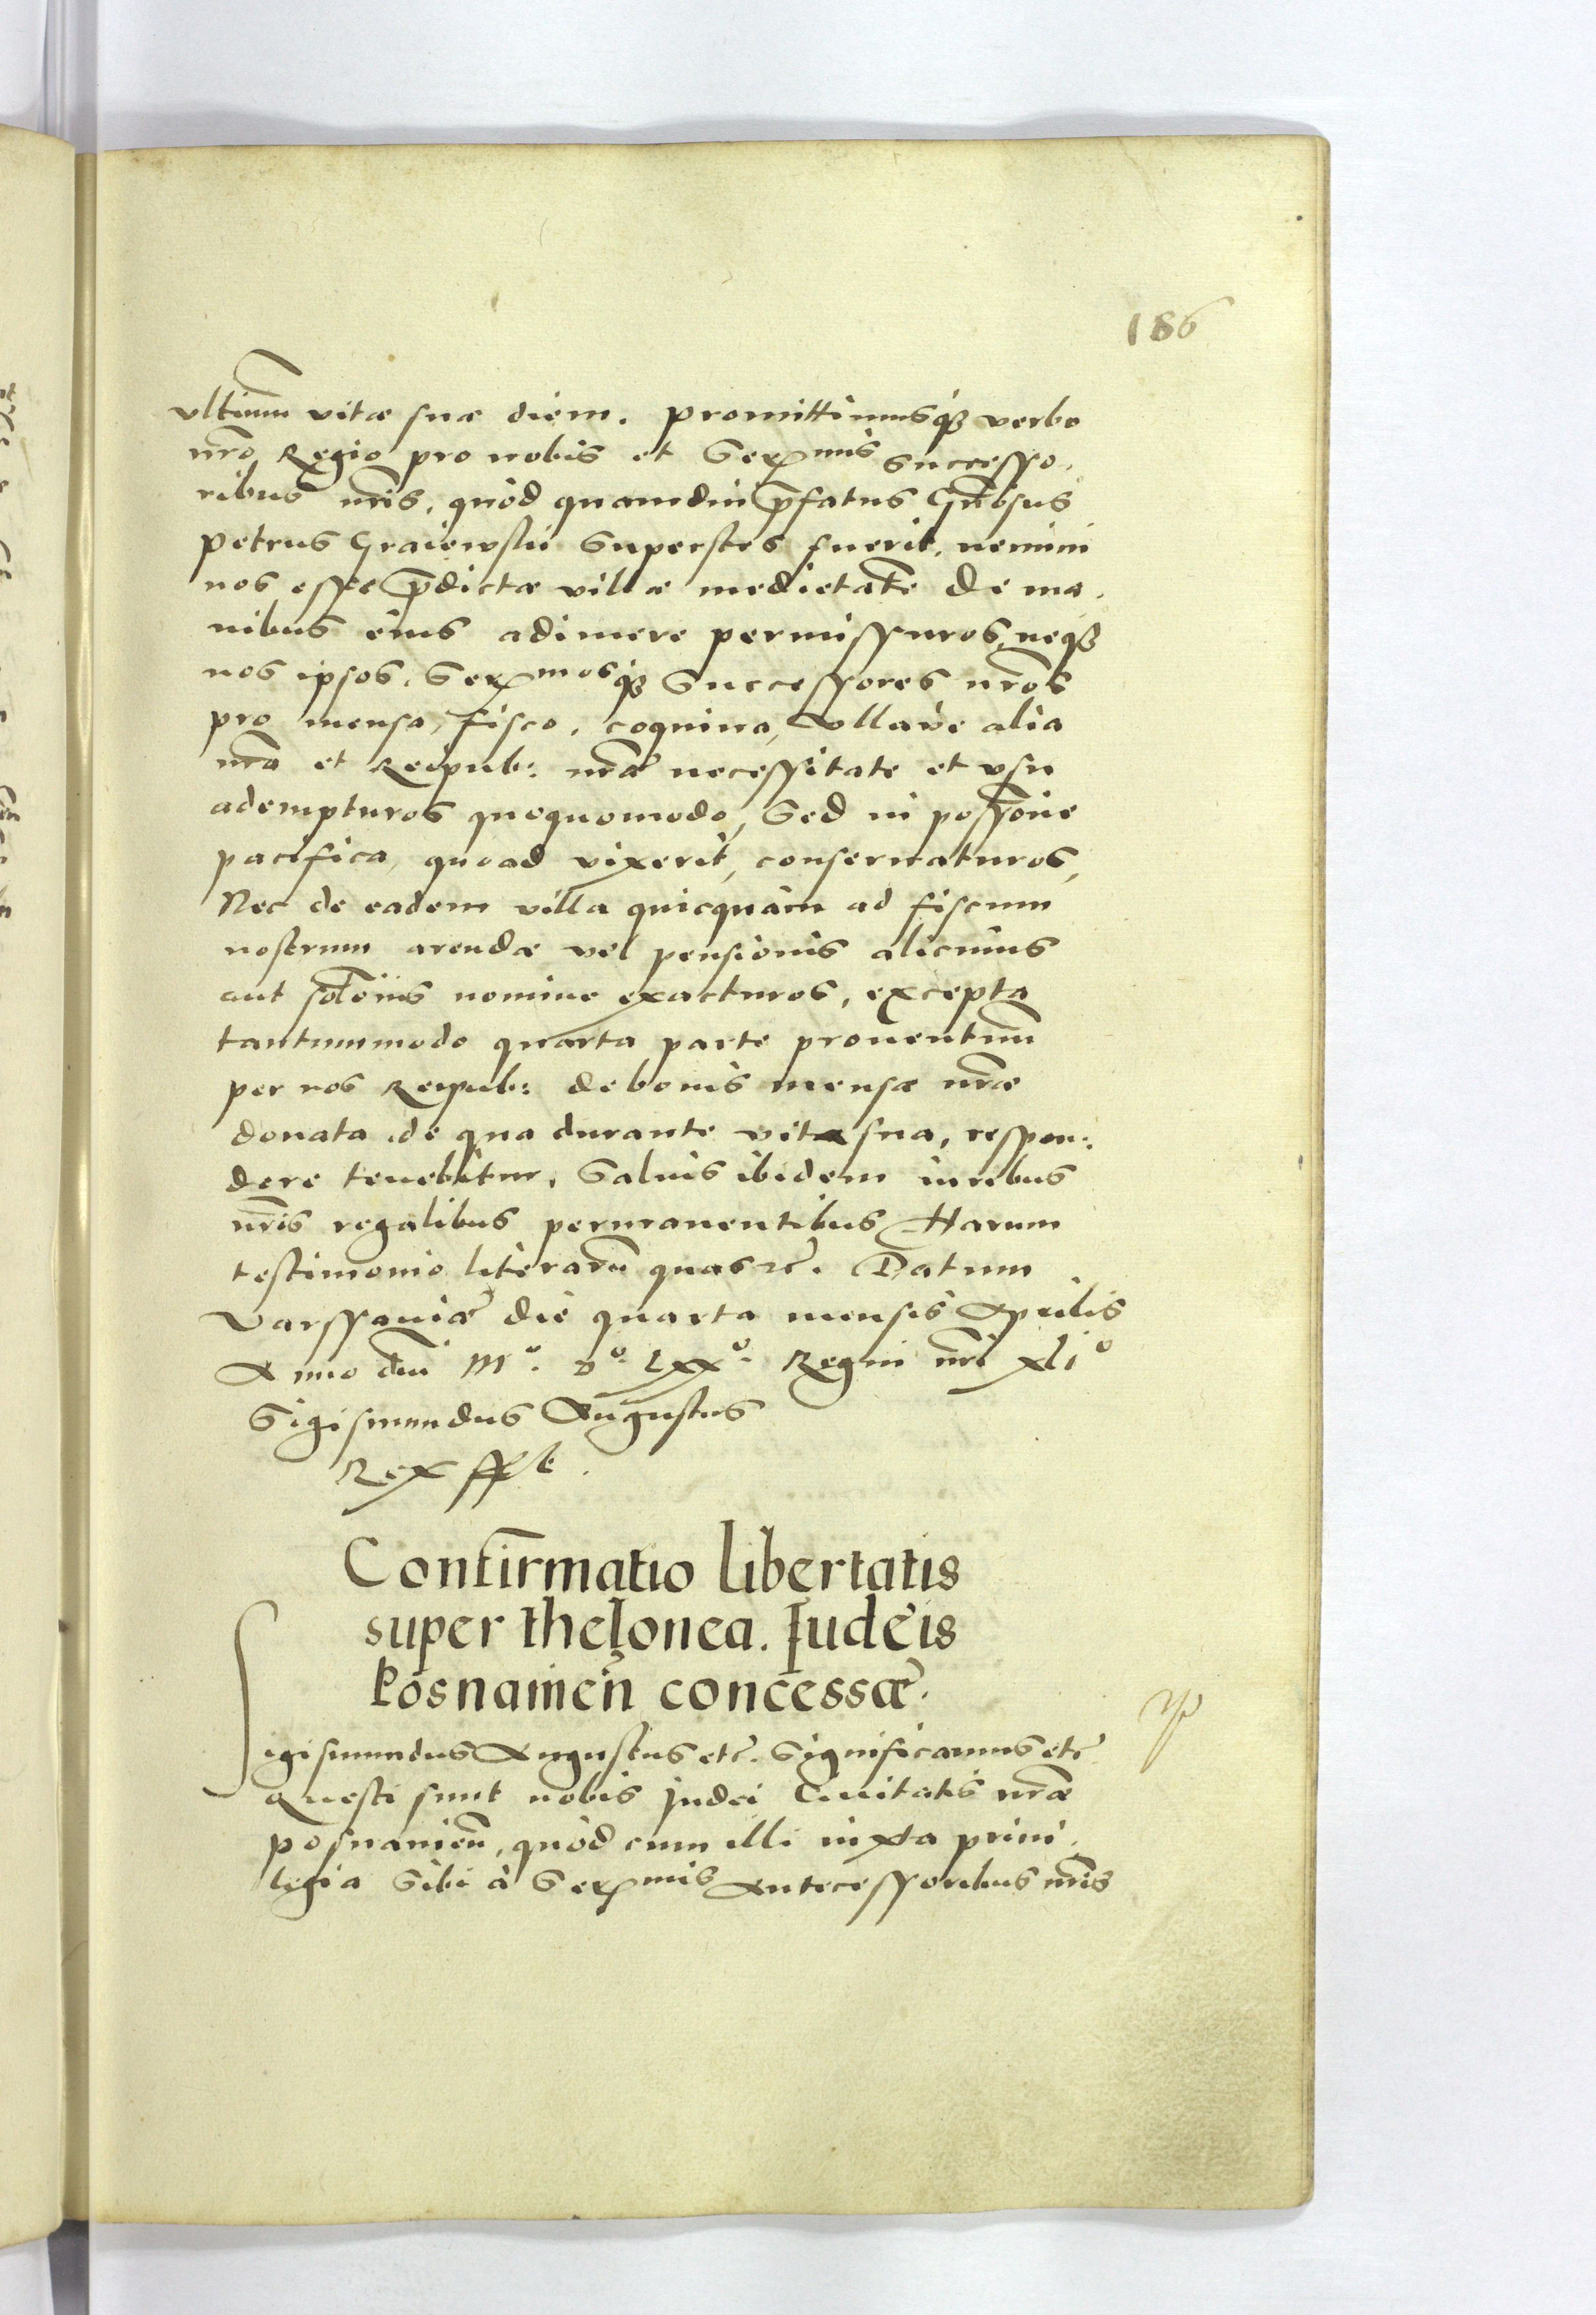 186
vltimum vitæ suæ diem. promittimusq; verbo
nr̃o Regio pro nobis et Ser^mis successo,
ribus nr̃is, quòd quamdiu p̃fatus Gn̄osus
petrus Graiewskii Superstes fuerit, nemini
nos esse p̃dictæ villæ medietatē de ma,
nibus eius adimere permissuros, neq;
nos ipsos, Ser^mosq; Successores nr̃os
pro mensa, fisco, coquina, vllaue alia
nr̃a et Reipub: nr̃æ necessitate et vsu
adempturos quoquomodo, Sed in possōne
pacifica, quoad vixerit, conseruaturos,
Nec de eadem villa quicquàm ad fiscum
nostrum arendæ vel pensionis alicuius
aut nomine exacturos, excepta
tantummodo quarta parte prouentuū
per nos Reipub: de bonis mensæ nr̃æ
donata, de qua durante vita sua, respon:
dere tenebitur, Saluis ibidem iuribus
nr̃is regalibus permanentibus Harum
testimonio literarū quas etc̃. Datum
Varssauiæ die quarta mensis Aprilis
Anno dn̄i M°. D°. Lxx°. Regni nr̃i xli°
Sigismundus Augustus
Rex sst.
Confirmatio libertatis
super thelonea. Iudeis
Posnanień concessæ.
Sigismundus Augustus etc̃. Significamus etc̃
Questi sunt nobis Judei Ciuitatis nr̃æ
posnanień, quòd cum illi iuxta priui,
legia Sibi à Ser^mis Antecessoribus nr̃is